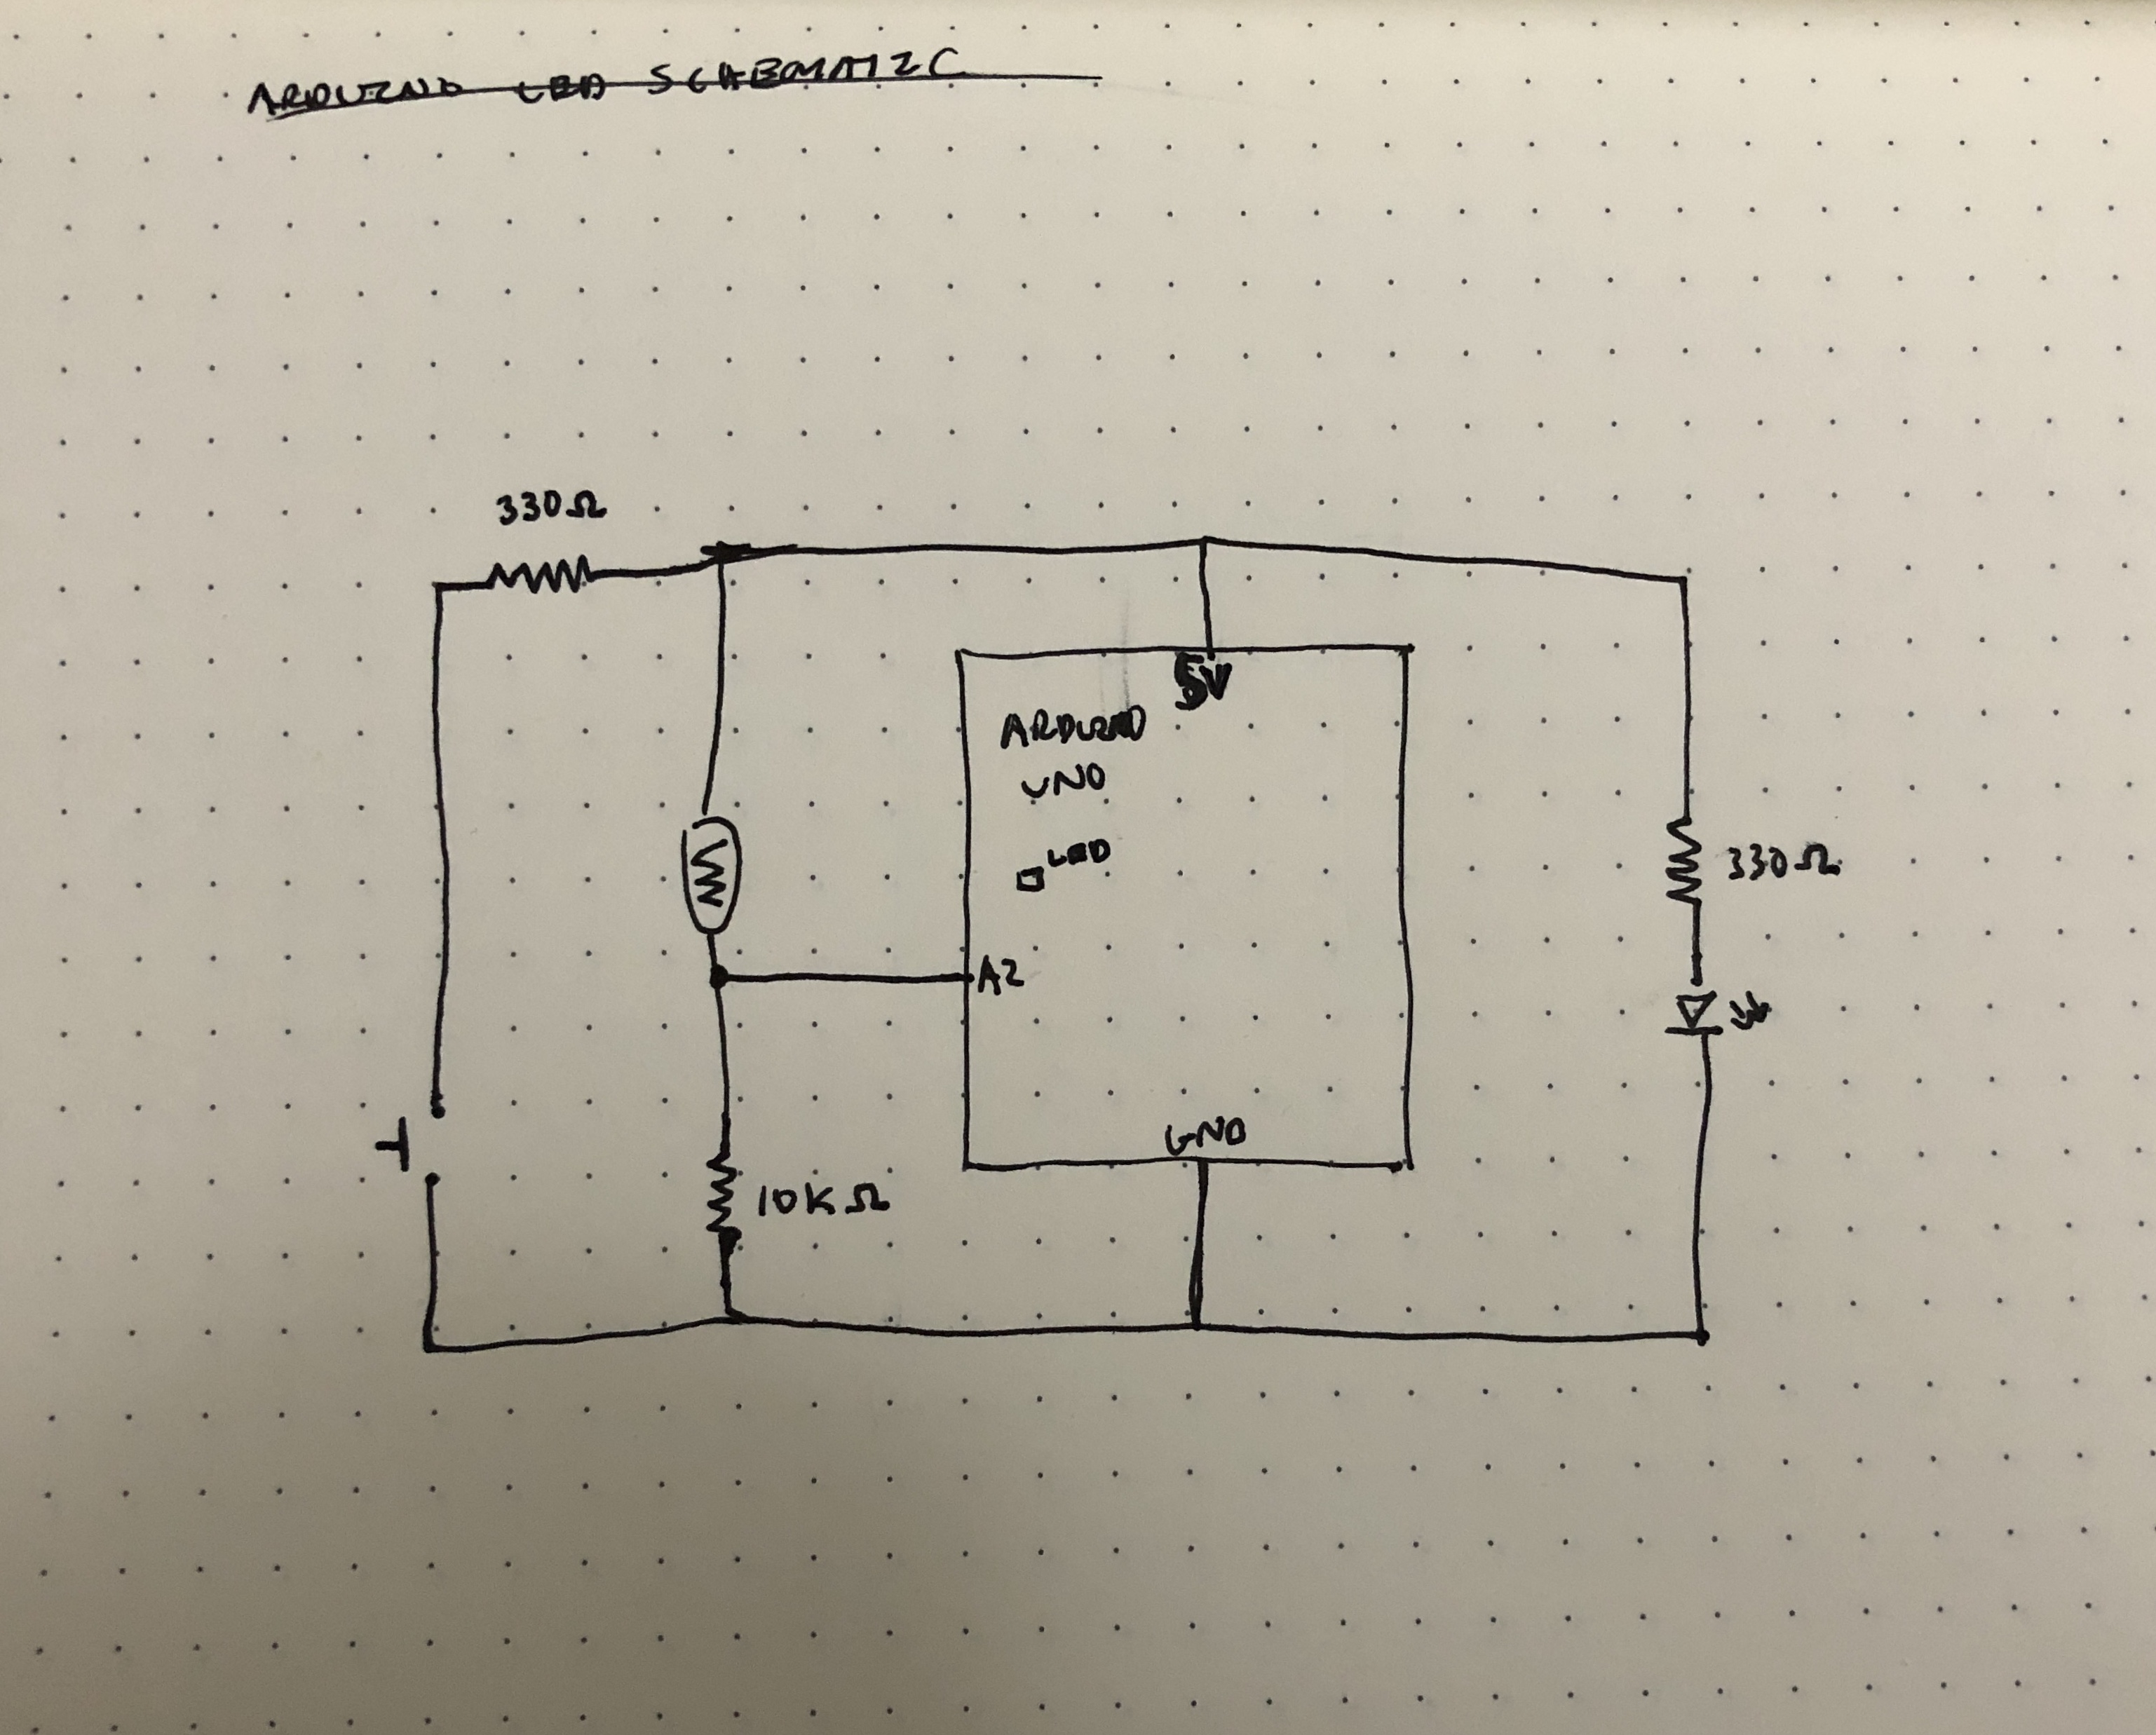 ARDUINO LED SCHEMATIC
330Ω
5V
ARDUINO
UNO
LED
330Ω
A2
GND
10KΩ